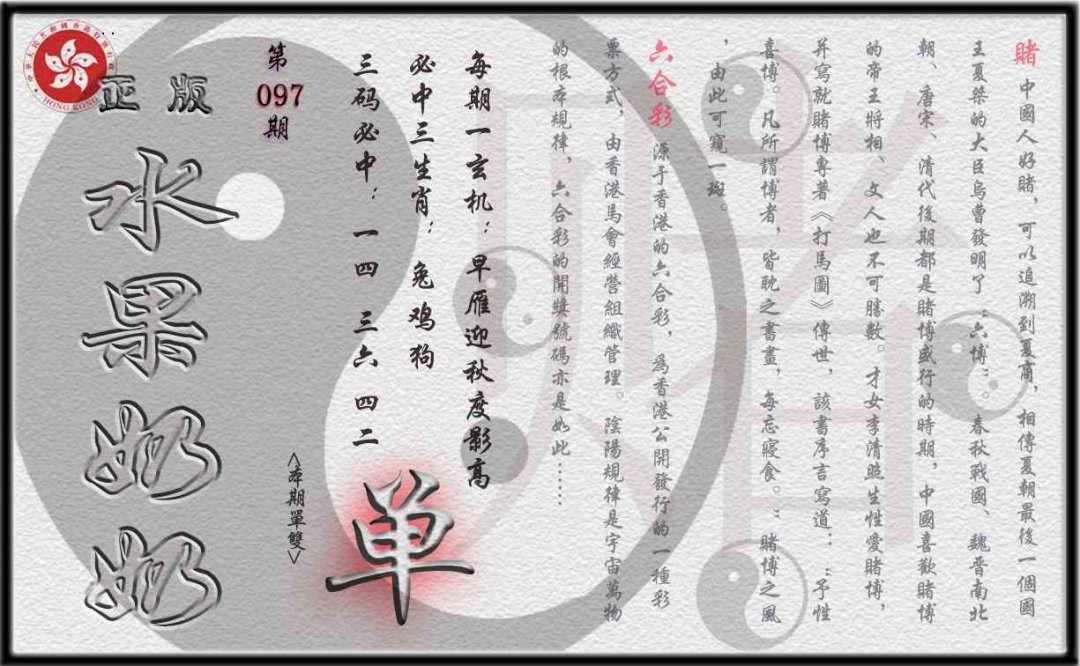 賭 中國人好賭，可以追溯到夏商，相傳夏朝最後一個國
王夏桀的大臣烏曹發明了“六博”。春秋戰國、魏晋南北
朝、唐宋、清代後期都是賭博盛行的時期，中國喜歡賭博
的帝王將相、文人也不可勝數。才女李清照生性愛賭博，
并寫就賭博專著《打馬圖》傳世，該書序言寫道：“予性
喜博。凡所謂博者，皆耽之書畫，每忘寢食。”賭博之風
，由此可窺一斑。
六合彩 源于香港的六合彩，為香港公開發行的一種彩
票方式，由香港馬會經營組織管理。陰陽規律是宇宙萬物
的根本規律，六合彩的開獎號碼亦是如此……
每期一玄机：早雁迎秋度影高
必中三生肖：兔鸡狗
三码必中：一四 三六 四二
单
第
097
期
<本期單雙>
正版
水果奶奶
HONG KONG